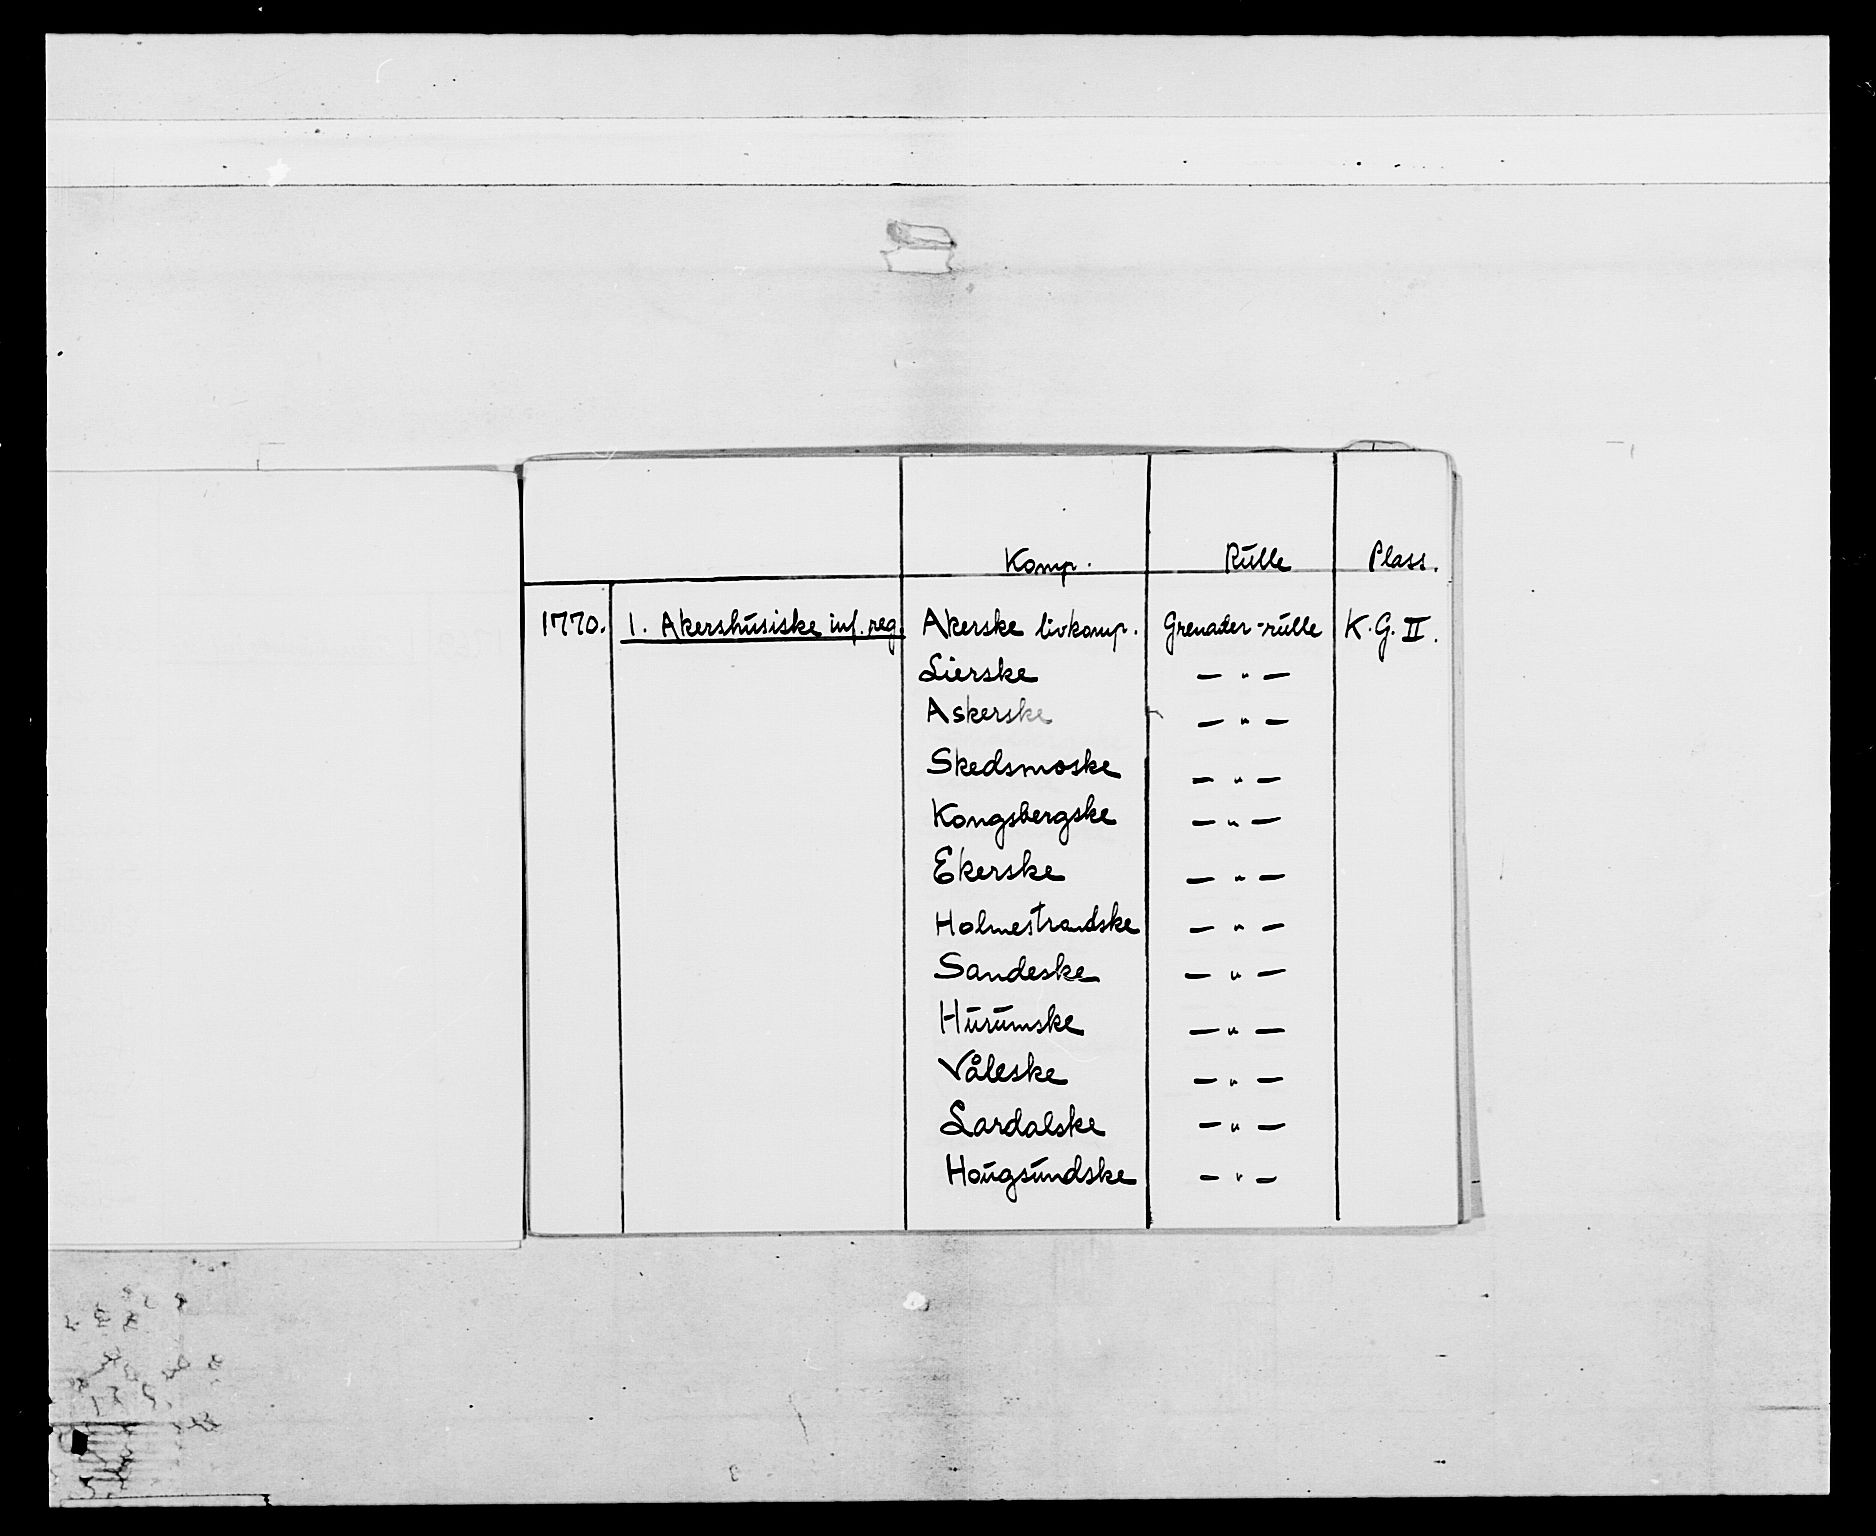 Komp. Rulle Plass.
1770. 1. Akershusiske inf. reg. Akerske livkomp. Grenader-rulle K.G. II.
Lierske — " —
Askerske — " —
Skedsmoske — " —
Kongsbergske — " —
Ekerske — " —
Holmestrandske — " —
Sandeske — " —
Hurumske — " —
Våleske — " —
Lardalske — " —
Hougsundske — " —